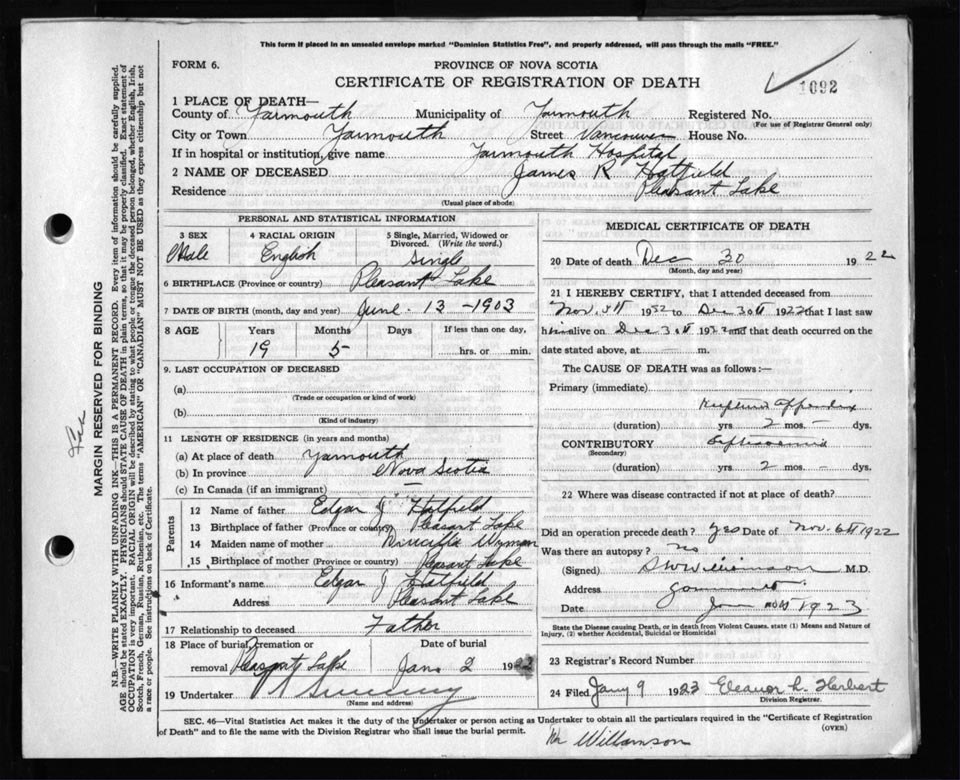 This form if placed in an unsealed envelope marked "Dominion Statistics Free", and properly addressed, will pass through the mails "FREE."
FORM 6.
PROVINCE OF NOVA SCOTIA
CERTIFICATE OF REGISTRATION OF DEATH
1092
1 PLACE OF DEATH—
County of Yarmouth Municipality of Yarmouth Registered No.
(For use of Registrar General only)
City or Town Yarmouth Street Vancouver House No.
If in hospital or institution, give name Yarmouth Hospital
2 NAME OF DECEASED James R Hatfield
Residence Pleasant Lake
(Usual place of abode)
PERSONAL AND STATISTICAL INFORMATION
3 SEX 4 RACIAL ORIGIN 5 Single, Married, Widowed or Divorced. (Write the word.)
Male English Single
6 BIRTHPLACE (Province or country) Pleasant Lake
7 DATE OF BIRTH (month, day and year) June 13-1903
8 AGE Years Months Days If less than one day,
19 5 hrs. or min.
9. LAST OCCUPATION OF DECEASED
(a)
(Trade or occupation or kind of work)
(b)
(Kind of industry)
11 LENGTH OF RESIDENCE (in years and months)
(a) At place of death Yarmouth
(b) In province Nova Scotia
(c) In Canada (if an immigrant) —
Parents
12 Name of father Edgar J Hatfield
13 Birthplace of father (Province or country) Pleasant Lake
14 Maiden name of mother Druscilla Wyman
15 Birthplace of mother (Province or country) Pleasant Lake
16 Informant's name Edgar J Hatfield
Address Pleasant Lake
17 Relationship to deceased Father
18 Place of burial, cremation or Date of burial
removal Pleasant Lake Jan 2 19
19 Undertaker V S Sweeny
(Name and address)
MEDICAL CERTIFICATE OF DEATH
20 Date of death Dec 30 1922
(Month, day and year)
21 I HEREBY CERTIFY, that I attended deceased from
Nov. 5th 1922 to Dec 30th 1922 that I last saw
h im alive on Dec 30th 1922 and that death occurred on the
date stated above, at — m.
The CAUSE OF DEATH was as follows:—
Primary (immediate)
Ruptured appendix
(duration) yrs 2 mos. — dys.
CONTRIBUTORY Septicaemia
(Secondary)
(duration) yrs 2 mos. — dys.
22 Where was disease contracted if not at place of death?
Did an operation precede death? yes Date of Nov. 6th 1922
Was there an autopsy? no
(Signed) S W Williamson M.D.
Address Yarmouth
Date Jan 1923
State the Disease causing Death, or in death from Violent Causes, state (1) Means and Nature of Injury, (2) whether Accidental, Suicidal or Homicidal
23 Registrar's Record Number
24 Filed Jany 9 1923 Eleanor L. Herbert
Division Registrar.
SEC. 46—Vital Statistics Act makes it the duty of the Undertaker or person acting as Undertaker to obtain all the particulars required in the "Certificate of Registration
of Death" and to file the same with the Division Registrar who shall issue the burial permit.
(OVER)
Williamson
MARGIN RESERVED FOR BINDING
N.B.—WRITE PLAINLY WITH UNFADING INK—THIS IS A PERMANENT RECORD. Every item of information should be carefully supplied.
AGE should be stated EXACTLY. PHYSICIANS should STATE CAUSE OF DEATH in plain terms, so that it may be properly classified. Exact statement of
OCCUPATION is very important. RACIAL ORIGIN will be described by stating to what people or tongue the deceased person belonged, whether English, Irish,
Scotch, French, German, Russian, Ruthenian, etc. The terms "AMERICAN" OR "CANADIAN" MUST NOT BE USED as they express citizenship but not
a race or people. See instructions on back of Certificate.